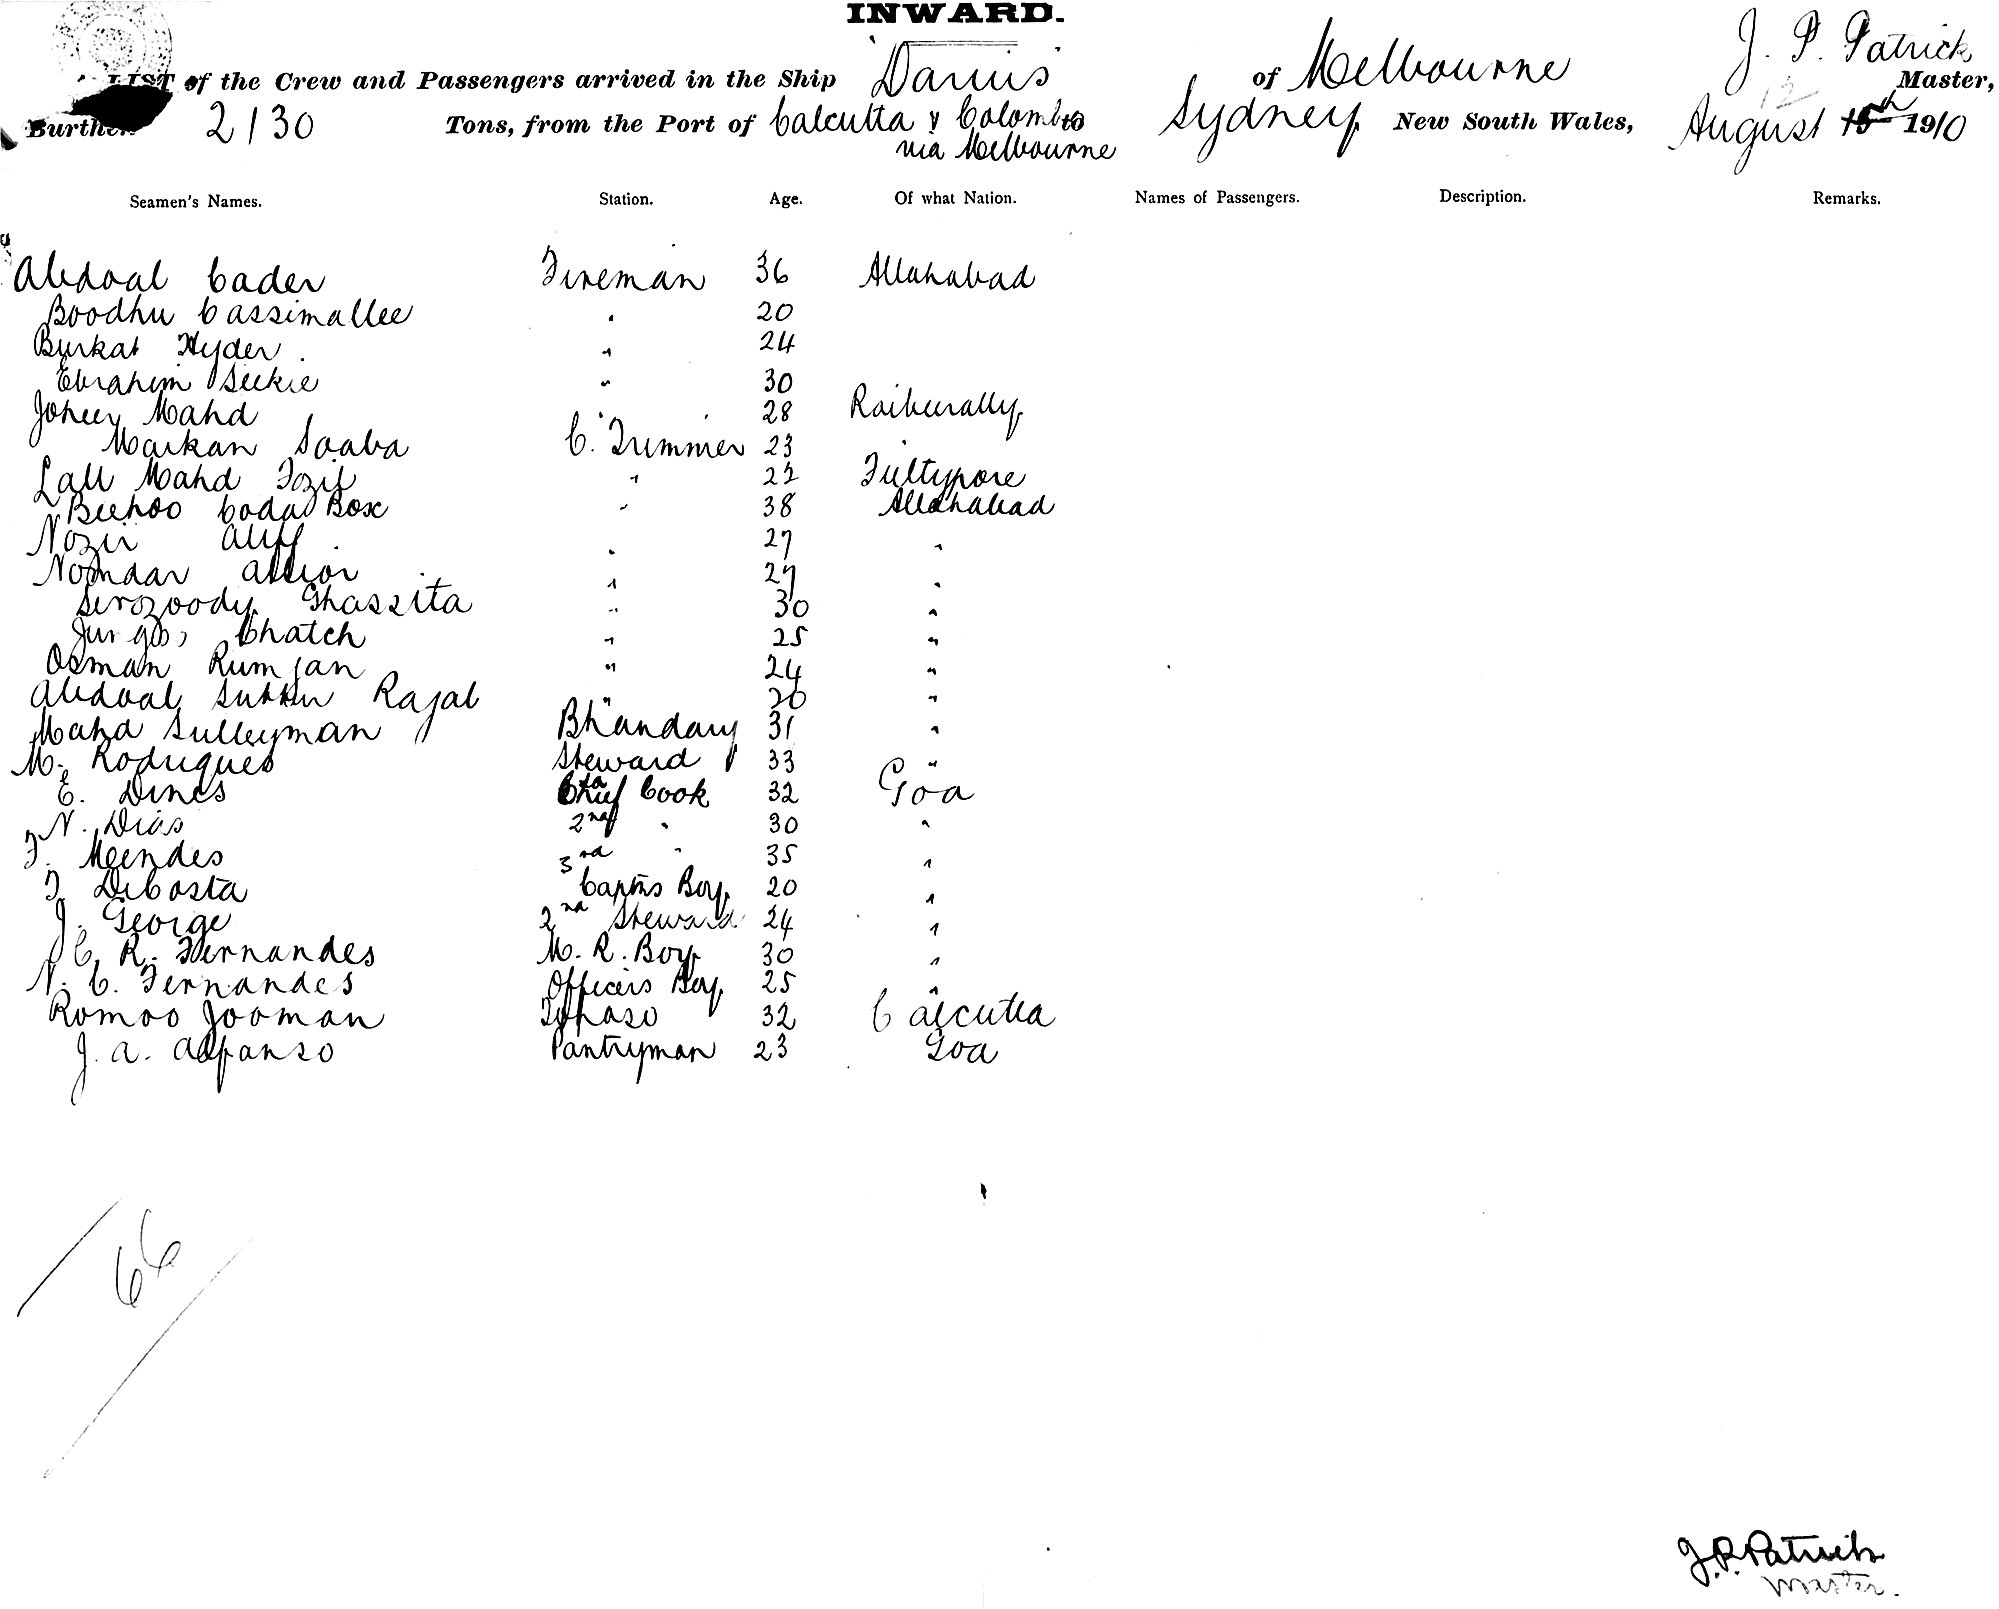 INWARD.
LIST of the Crew and Passengers arrived in the Ship Darius of Melbourne J. P. Patrick Master,
12
Burthen 2130 Tons, from the Port of Calcutta & Colombo to Sydney, New South Wales, August 15th 1910
via Melbourne
Seamen's Names. Station. Age. Of what Nation. Names of Passengers. Description. Remarks.
Abdoal Cader Fireman 36 Allahabad
Boodhu Cassimallee " 20
Burkat Hyder " 24
Ebrahim Seekie " 30
Joheer Mahd " 28 Raiburally
Markan Soaba C. Trimmer 23 "
Lall Mahd Fozil " 22 Futtypore
Beehoo Coda Box " 38 Allahabad
Nozir Aliff " 27 "
Nomdar " 27 "
Serozoody Ghassita " 30 "
Chatch " 25 "
Osman Rumjan " 24 "
Abdoal Sukkur Rajab " 30 "
Mahd Sulleyman Bhandary 31 "
M. Rodrigues Steward 33 "
E. Dines Chief Cook 32 Goa
N. Dias 2nd " 30 "
F. Mendes 3rd " 35 "
F. DeCosta Captns Boy 20 "
J. George 2nd Steward 24 "
C. R. Fernandes M. R. Boy 30 "
N. C. Fernandes Officers Boy 25 "
Romoo Jooman Tophaso 32 Calcutta
J. A. Alfonso Pantryman 23 Goa
66
J. P. Patrick
Master.